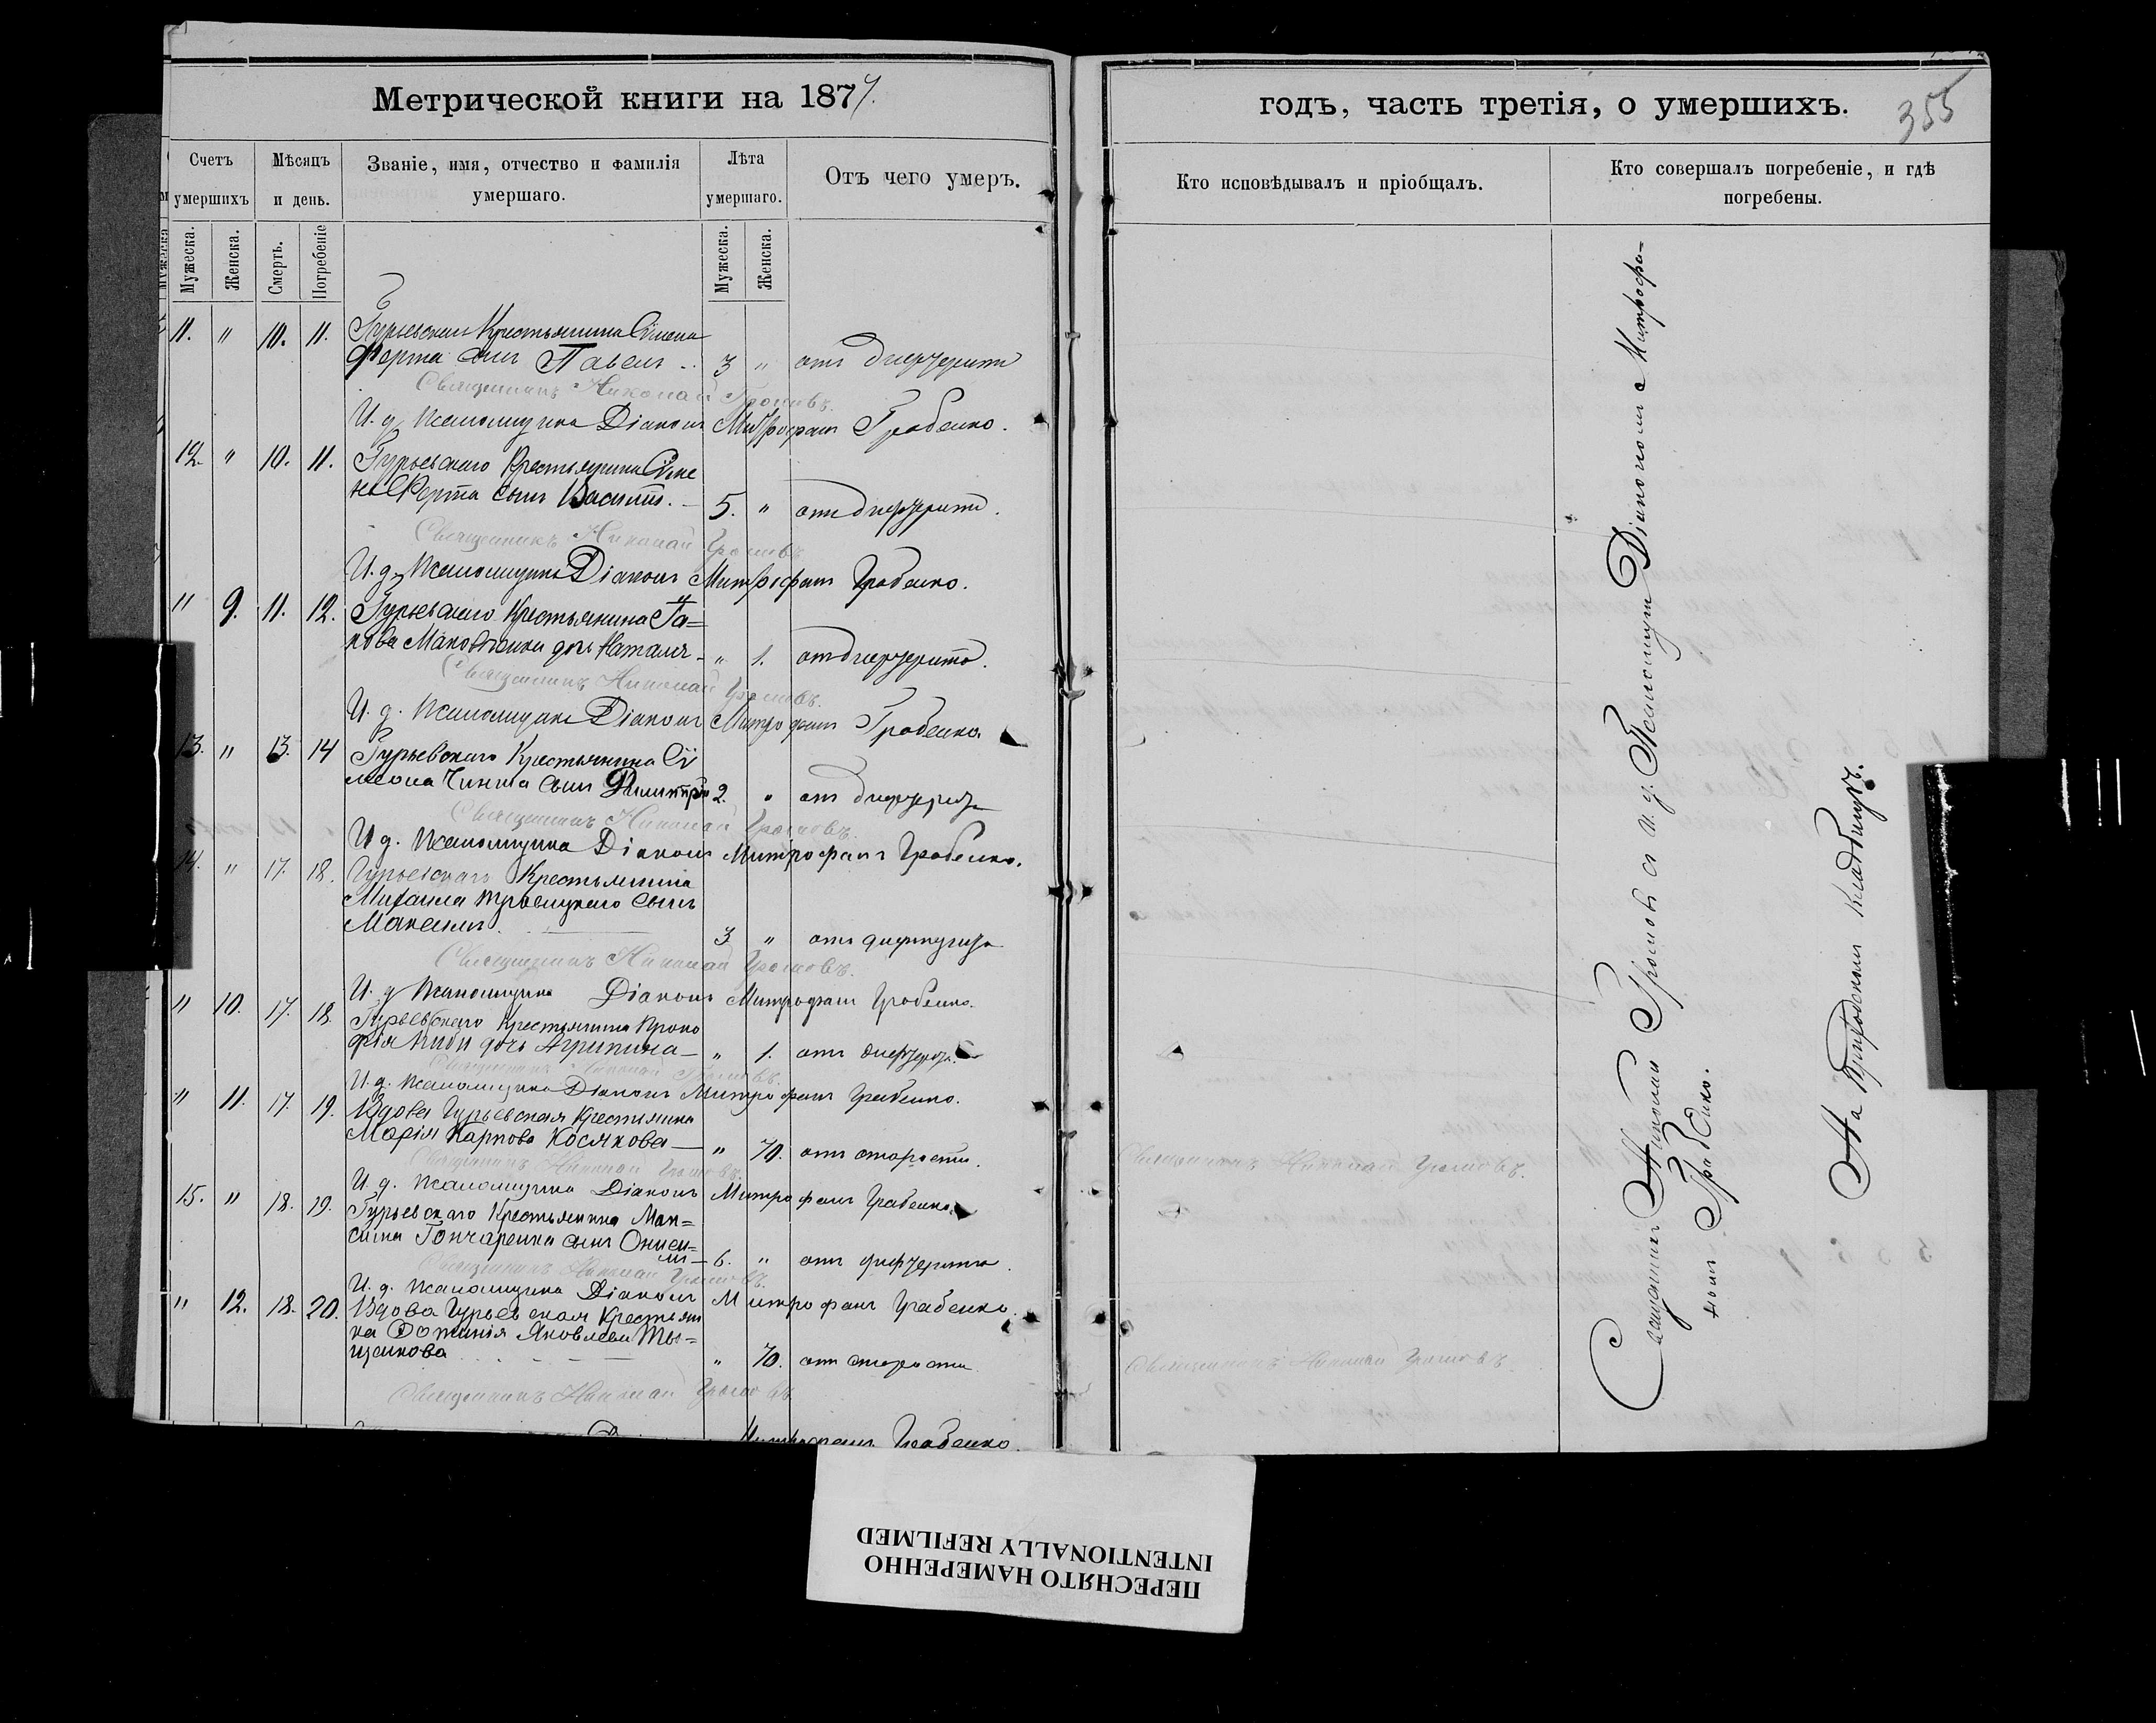 Метрической книги на 1877.
годъ, часть третія, о умершихъ.
355
Счетъ умершихъ
Мѣсяцъ и день.
Званіе, имя, отчество и фамилія
умершаго.
Лѣта умершаго.
Отъ чего умеръ.
Кто исповѣдывалъ и пріобщалъ.
Кто совершалъ погребеніе, и гдѣ
погребены.
Мужеска.
Женска.
Смерть.
Погребеніе
Мужеска.
Женска.
11. " 10. 11. Крестьянина
сынъ Павелъ 3 " отъ
Священникъ Николай Громовъ.
И. д. Псаломщика Діаконъ Митрофанъ Грабенко.
12. " 10. 11. Гурьевскаго Крестьянина
сынъ Василій. 5. " отъ
Священникъ Николай Громовъ
И. д. Псаломщика Діаконъ Митрофанъ Грабенко.
" 9. 11. 12. Гурьевскаго Крестьянина
дочь Наталія " 1. отъ дифтерита.
Священникъ Николай Громовъ.
И. д. Псаломщика Діаконъ Митрофанъ Грабенко.
13. " 13. 14 Гурьевскаго Крестьянина Си
меона сынъ Димитрій 2. " отъ
Священникъ Николай Громовъ.
И. д. Псаломщика Діаконъ Митрофанъ Грабенко.
14. " 17. 18. Гурьевскаго Крестьянина
Михаила сынъ
Максимъ. 3 " отъ
Священникъ Николай Громовъ.
И. д. Псаломщика Діаконъ Митрофанъ Грабенко.
" 10. 17. 18. Гурьевскаго Крестьянина Проко
фія дочь Агрипина " 1. отъ
И. д. Псаломщика Діаконъ Митрофанъ Грабенко.
" 11. 17. 19. Вдова Гурьевская Крестьянка
Марія Карпова Косякова " 70. отъ старости.
Священникъ Николай Громовъ.
Священникъ Николай Громовъ.
И. д. Псаломщика Діаконъ Митрофанъ Грабенко.
15. " 18. 19. Гурьевскаго Крестьянина Мак=
сима Гончаренка сынъ Ониси=
мъ 6. " отъ дифтерита.
Священникъ Николай Громовъ.
И. д. Псаломщика Діаконъ Митрофанъ Грабенко.
" 12. 18. 20. Вдова Гурьевская Крестьян
ка Яковлева
" 70. отъ старости
Священникъ Николай Громовъ.
Священникъ Николай Громовъ
Митрофанъ Грабенко.
Священникъ Николай Громовъ съ и. д. Псаломщика Діакономъ Митрофа-
номъ Грабенко.
На Приходскомъ кладбищѣ.
ПЕРЕСНЯТО НАМЕРЕННО
INTENTIONALLY REFILMED